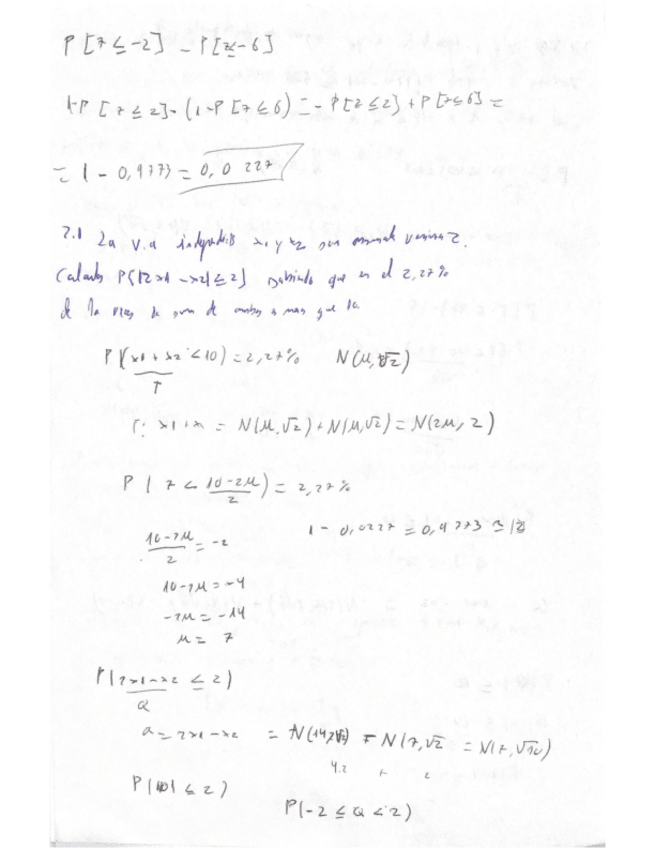 P [z ≤ -2] - P [z ≤ -6]
1-P [z ≤ 2] - (1-P [z ≤ 6) = - P [z ≤ 2] + P [z ≤ 6] =
= 1 - 0,9773 = 0,0227
2.1 La v.a x1 y x2 son varianza 2.
Calcula P[|2x1 - x2| ≤ 2] sabiendo que en el 2,27%
de la veces la suma de ambas que
P(x1 + x2 < 10) = 2,27% N(μ, √2)
T
T: x1 + x = N(μ, √2) + N(μ, √2) = N(2μ, 2)
P | z < (10-2μ)/2) = 2,27%
(10-2μ)/2 = -2 1 - 0,0227 = 0,9773
10-2μ = -4
-2μ = -14
μ = 7
P(|2x1 - x2 ≤ 2)
Q
Q = 2x1 - x2 = N(14, 2√2) - N(7, √2 = N(7, √10)
4.2 + 2
P(|Q| ≤ 2)
P(-2 ≤ Q < 2)